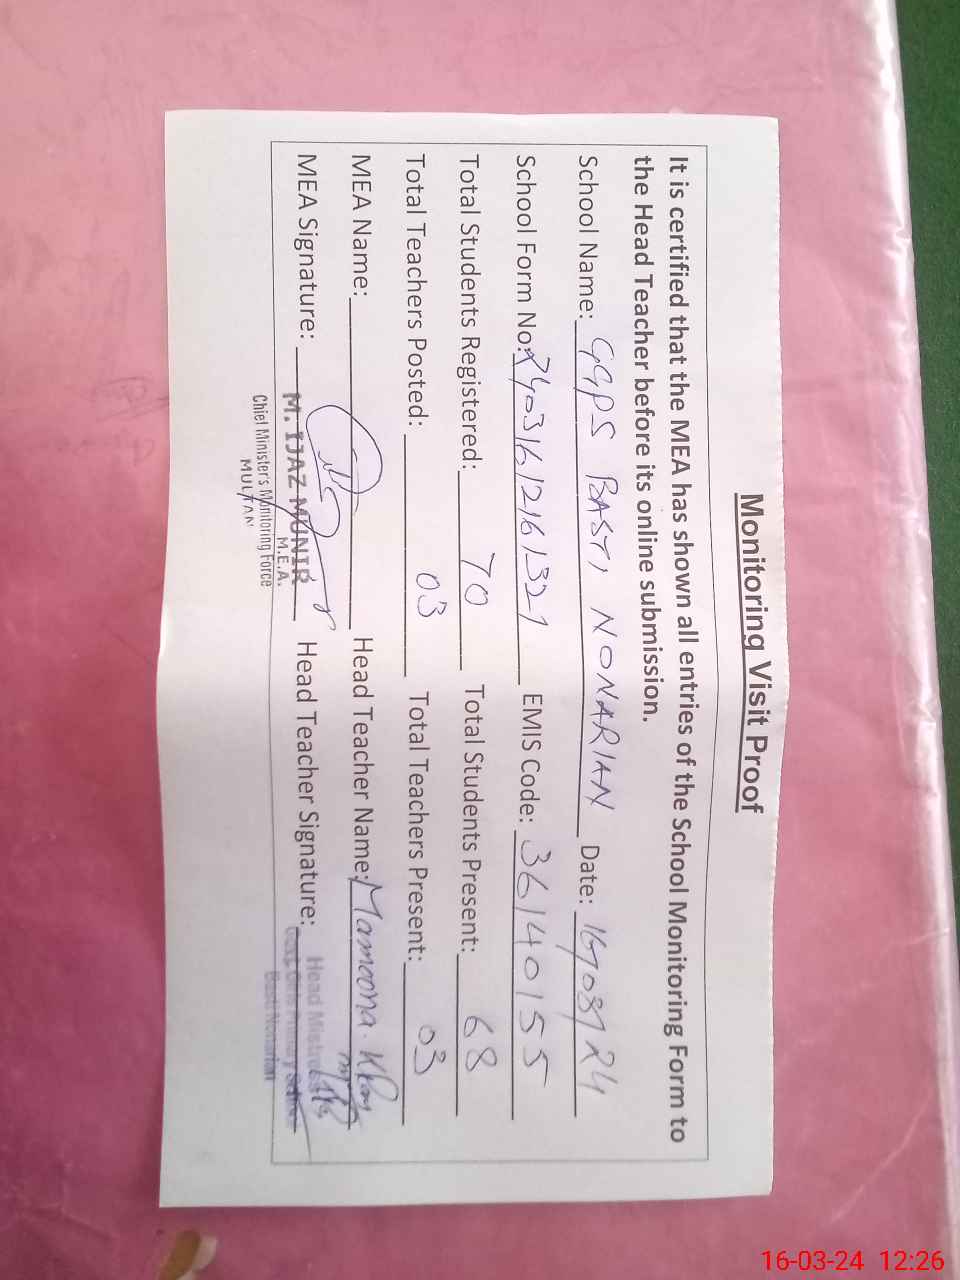 Monitoring Visit Proof
It is certified that the MEA has shown all entries of the School Monitoring Form to
the Head Teacher before its online submission.
School Name: GGPS BASTI NONARIAN Date: 16/03/24
School Form No: EMIS Code: 36140155
Total Students Registered: 70 Total Students Present: 68
Total Teachers Posted: 03 Total Teachers Present: 03
MEA Name: Head Teacher Name: Mamoona Khan
MEA Signature: M. IJAZ MUNIR Head Teacher Signature: Head Mistress
M.E.A. Govt. Girls Primary School
Chief Minister's Monitoring Force Basti Nonarian
MULTAN
16-03-24 12:26